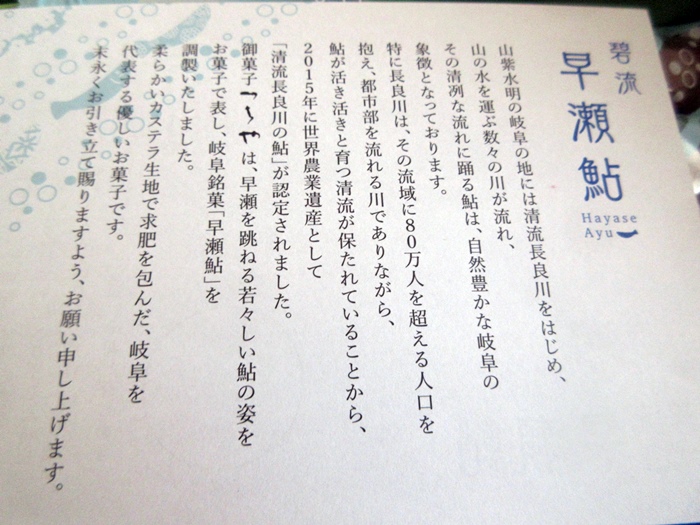 碧流
早瀬鮎
Hayase
Ayu
山紫水明の岐阜の地には清流長良川をはじめ、
山の水を運ぶ数々の川が流れ、
その清冽な流れに踊る鮎は、自然豊かな岐阜の
象徴となっております。
特に長良川は、その流域に80万人を超える人口を
抱え、都市部を流れる川でありながら、
鮎が活き活きと育つ清流が保たれていることから、
2015年に世界農業遺産として
「清流長良川の鮎」が認定されました。
御菓子つちやは、早瀬を跳ねる若々しい鮎の姿を
お菓子で表し、岐阜銘菓「早瀬鮎」を
調製いたしました。
柔らかいカステラ生地で求肥を包んだ、岐阜を
代表する優しいお菓子です。
末永くお引き立て賜りますよう、お願い申し上げます。